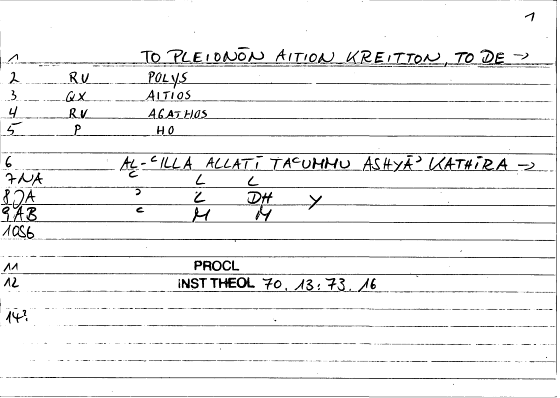 1
1 TO PLEIONŌN AITION KREITTON, TO DE →
2 RV POLYS
3 QX AITIOS
4 RV AGATHOS
5 P HO
6 AL-ʿILLA ALLATĪ TAʿUMMU ASHYĀʾ KATHĪRA →
7 NA ʿ L L
8 JA ʾ L DH Y
9 AB ʿ M M
10 S6
11 PROCL
12 INST THEOL 70. 13: 73. 16
14?: